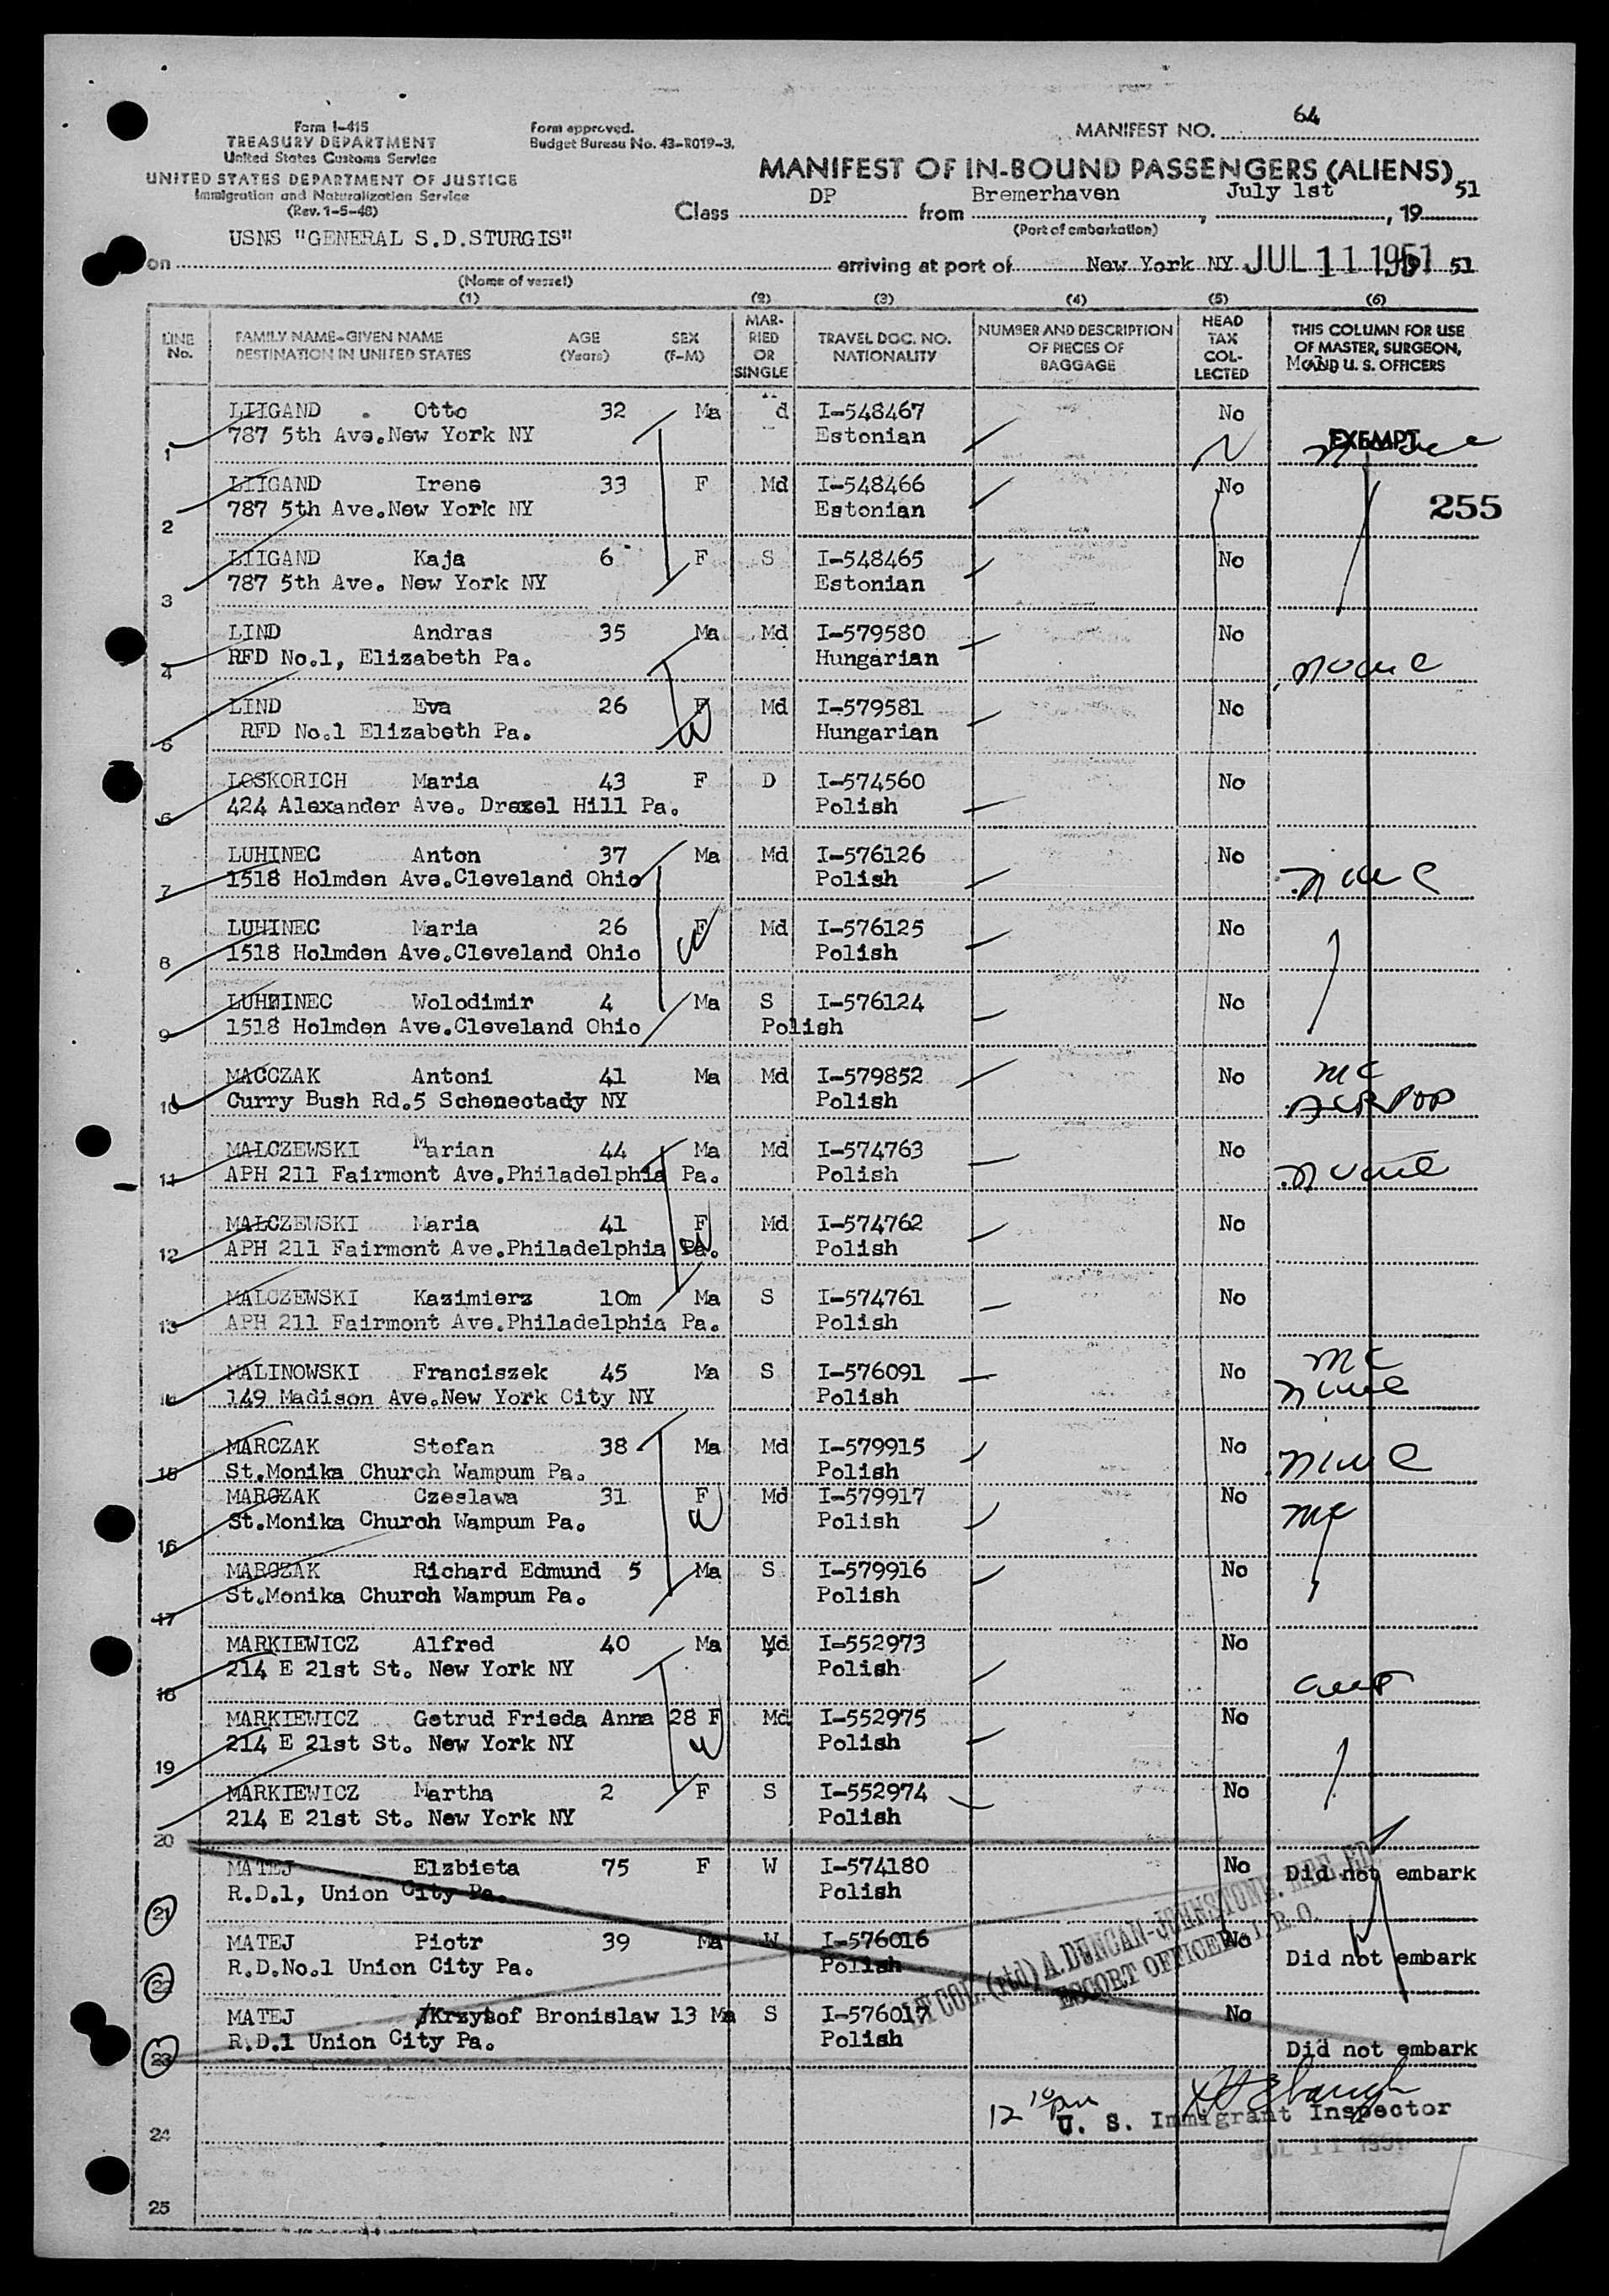 Form I-415
TREASURY DEPARTMENT
United States Customs Service
UNITED STATES DEPARTMENT OF JUSTICE
Immigration and Naturalization Service
(Rev. 1-5-48)
Form approved.
Budget Bureau No. 43-R019-3.
MANIFEST NO. 64
MANIFEST OF IN-BOUND PASSENGERS (ALIENS)
Class DP from Bremerhaven, July 1st, 19 51
(Port of embarkation)
USNS "GENERAL S.D.STURGIS"
on arriving at port of New York NY JUL 11 1951 51
(Name of vessel)
(1) (2) (3) (4) (5) (6)
LINE No.
FAMILY NAME-GIVEN NAME
DESTINATION IN UNITED STATES
AGE (Years)
SEX (F-M)
MAR-RIED OR SINGLE
TRAVEL DOC. NO. NATIONALITY
NUMBER AND DESCRIPTION OF PIECES OF BAGGAGE
HEAD TAX COL-LECTED
THIS COLUMN FOR USE OF MASTER, SURGEON, AND U. S. OFFICERS
LIIGAND Otto 32 Ma d I-548467 No
1 787 5th Ave.New York NY Estonian EXEMPT
LIIGAND Irene 33 F Md I-548466 No
2 787 5th Ave.New York NY Estonian 255
LIIGAND Kaja 6 F S I-548465 No
3 787 5th Ave. New York NY Estonian
LIND Andras 35 Ma Md I-579580 No
4 RFD No.1, Elizabeth Pa. Hungarian none
LIND Eva 26 F Md I-579581 No
5 RFD No.1 Elizabeth Pa. Hungarian
LOSKORICH Maria 43 F D I-574560 No
6 424 Alexander Ave. Drexel Hill Pa. Polish
LUHINEC Anton 37 Ma Md I-576126 No
7 1518 Holmden Ave.Cleveland Ohio Polish none
LUHINEC Maria 26 F Md I-576125 No
8 1518 Holmden Ave.Cleveland Ohio Polish
LUHINEC Wolodimir 4 Ma S I-576124 No
9 1518 Holmden Ave.Cleveland Ohio Polish
MACCZAK Antoni 41 Ma Md I-579852 No mc
10 Curry Bush Rd.5 Schenectady NY Polish
MALCZEWSKI Marian 44 Ma Md I-574763 No
11 APH 211 Fairmont Ave.Philadelphia Pa. Polish none
MALCZEWSKI Maria 41 F Md I-574762 No
12 APH 211 Fairmont Ave.Philadelphia Pa. Polish
MALCZEWSKI Kazimierz 10m Ma S I-574761 No
13 APH 211 Fairmont Ave.Philadelphia Pa. Polish
MALINOWSKI Franciszek 45 Ma S I-576091 No mc
14 149 Madison Ave.New York City NY Polish none
MARCZAK Stefan 38 Ma Md I-579915 No
15 St.Monika Church Wampum Pa. Polish none
MARCZAK Czeslawa 31 F Md I-579917 No
16 St.Monika Church Wampum Pa. Polish mc
MARCZAK Richard Edmund 5 Ma S I-579916 No
17 St.Monika Church Wampum Pa. Polish
MARKIEWICZ Alfred 40 Ma Md I-552973 No
18 214 E 21st St. New York NY Polish
MARKIEWICZ Getrud Frieda Anna 28 F Md I-552975 No
19 214 E 21st St. New York NY Polish
MARKIEWICZ Martha 2 F S I-552974 No
20 214 E 21st St. New York NY Polish
MATEJ Elzbieta 75 F W I-574180 No Did not embark
21 R.D.1, Union City Pa. Polish
MATEJ Piotr 39 Ma W I-576016 No
22 R.D.No.1 Union City Pa. Polish Did not embark
MATEJ Krzysof Bronislaw 13 Ma S I-576017 No
23 R.D.1 Union City Pa. Polish Did not embark
COL. (rtd) A. DUNCAN-JOHNSTONE.
ESCORT OFFICER I. R. O.
12 10 pm
24 U. S. Immigrant Inspector
JUL 11 1951
25